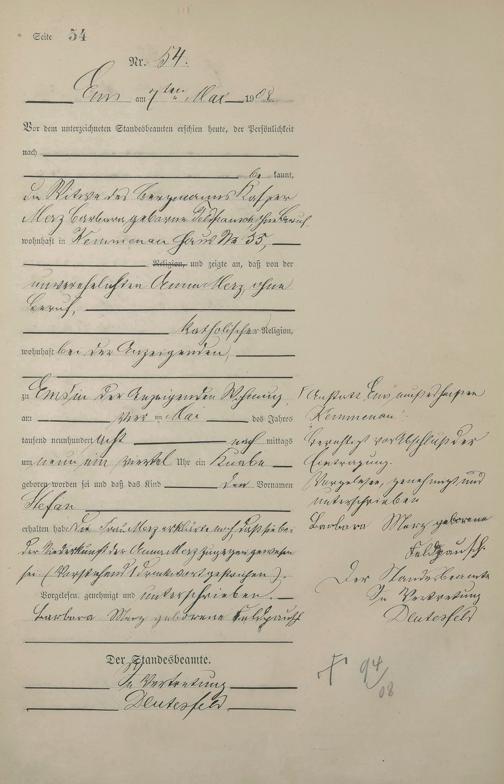 Seite 54
Nr. 54.
Ems am 7ten Mai 1908
Vor dem unterzeichneten Standesbeamten erschien heute, der Persönlichkeit
nach
be kannt,
die Witwe des Bergmanns Kasper
Merz Barbara, geborene Feldpausch, ohne Beruf
wohnhaft in Kemmenau Haus Nr. 35,
Religion, und zeigte an, daß von der
unverehelichten Anna Merz, ohne
Beruf,
katholischer Religion,
wohnhaft bei der Anzeigenden,
zu Ems in der Anzeigenden Wohnung
am vier ten Mai des Jahres
tausend neunhundert acht nach mittags
um neun ein viertel Uhr ein Knabe
geboren worden sei und daß das Kind den Vornamen
Stefan
erhalten habe. Die Frau Merz erklärte noch, daß sie bei
der Niederkunft der Anna Merz zugegen gewesen
sei (Vorstehend 1 Druckwort gestrichen).
Vorgelesen, genehmigt und unterschrieben.
Barbara Merz geborene Feldpausch
Der Standesbeamte.
In Vertretung
Deutesfeld
Anstatt "Ems" muß es heißen
Kemmenau.
Berichtigt vor Abschluß der
Eintragung.
Vorgelesen, genehmigt und
unterschrieben
Barbara Merz geborene
Feldpausch.
Der Standesbeamte
In Vertretung
Deutesfeld
94
08